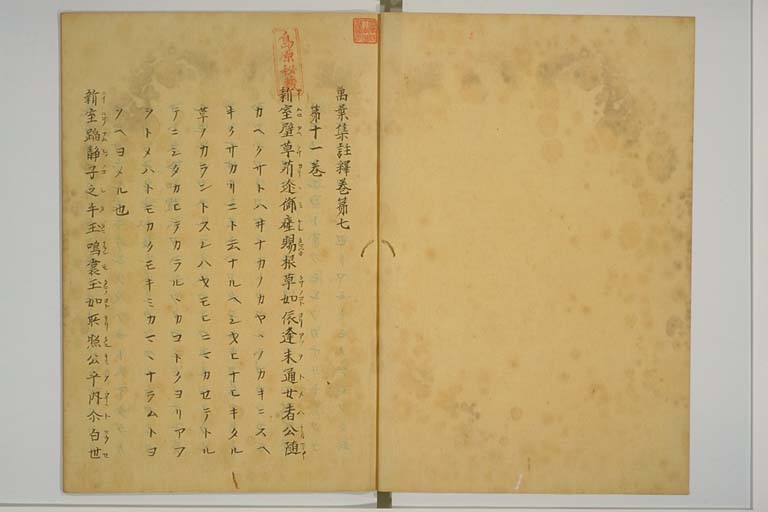 萬葉集註釋卷第七
第十一卷
新室壁草苅迩御座賜根草如依逢未通女者公随
カヘクサトハヰナカノカヤハソカキニスヘ
キクサカリニト云ナルヘシヤヒナヒキタル
草ノカランドスレハヤモヒニマカセテトル
テニシタカヒテカラルヽカコトクヨリアフ
ヲトメハトモカクモキミカマヽナラムトヨ
ソヘヨメル也
新室蹈静子之手玉鳴裳玉如所照公乎内等白世
島原秘蔵